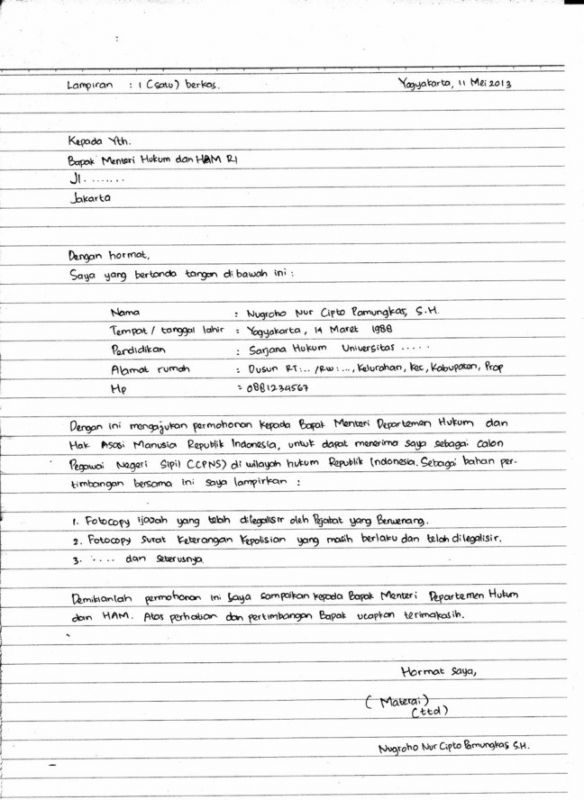 Lampiran : 1 (satu) berkas.
Yogyakarta, 11 Mei 2013
Kepada Yth.
Bapak Menteri Hukum dan HAM RI
Jl. ........
Jakarta
Dengan hormat,
Saya yang bertanda tangan dibawah ini :
Nama : Nugroho Nur Cipto Pamungkas, S.H.
Tempat / tanggal lahir : Yogyakarta, 14 Maret 1988
Pendidikan : Sarjana Hukum Universitas .....
Alamat rumah : Dusun RT:.. /RW:..., Kelurahan, Kec, Kabupaten, Prop
Hp : 0881234567
Dengan ini mengajukan permohonan kepada Bapak Menteri Departemen Hukum dan
Hak Asasi Manusia Republik Indonesia, untuk dapat menerima saya sebagai calon
Pegawai Negeri Sipil (CPNS) di wilayah hukum Republik Indonesia. Sebagai bahan per-
timbangan bersama ini saya lampirkan :
1. Fotocopy ijazah yang telah dilegalisir oleh Pejabat yang Berwenang.
2. Fotocopy Surat Keterangan Kepolisian yang masih berlaku dan telah dilegalisir.
3. ..... dan seterusnya
Demikianlah permohonan ini saya sampaikan kepada Bapak Menteri Departemen Hukum
dan HAM. Atas perhatian dan pertimbangan Bapak ucapkan terimakasih.
Hormat saya,
( Materai )
(ttd)
Nugroho Nur Cipto Pamungkas S.H.